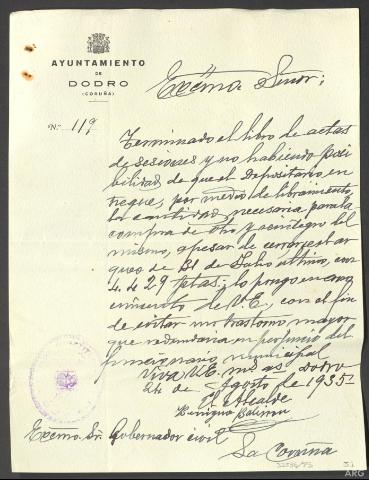 AYUNTAMIENTO
DE
DODRO
(CORUÑA)
Excmo. Señor;
N.º 119
Terminado el libro de actas
de sesiones y no habiendo posi
bilidad de que el Depositario en
tregue, por medio de libramiento,
la cantidad necesaria para la
compra de otro y reintegro del
mismo, apesar de
de 31 de Julio último, con
4. de 29 ptas; lo pongo en cono
cimiento de V.E., con el fin
de evitar un trastorno mayor
que redundaria en perjuicio del
funcionario municipal
Viva V.E. m. as. Dodro
24 de Agosto de 1935
El Alcalde
Excmo. Sr. Gobernador civil
La Coruña
ARG